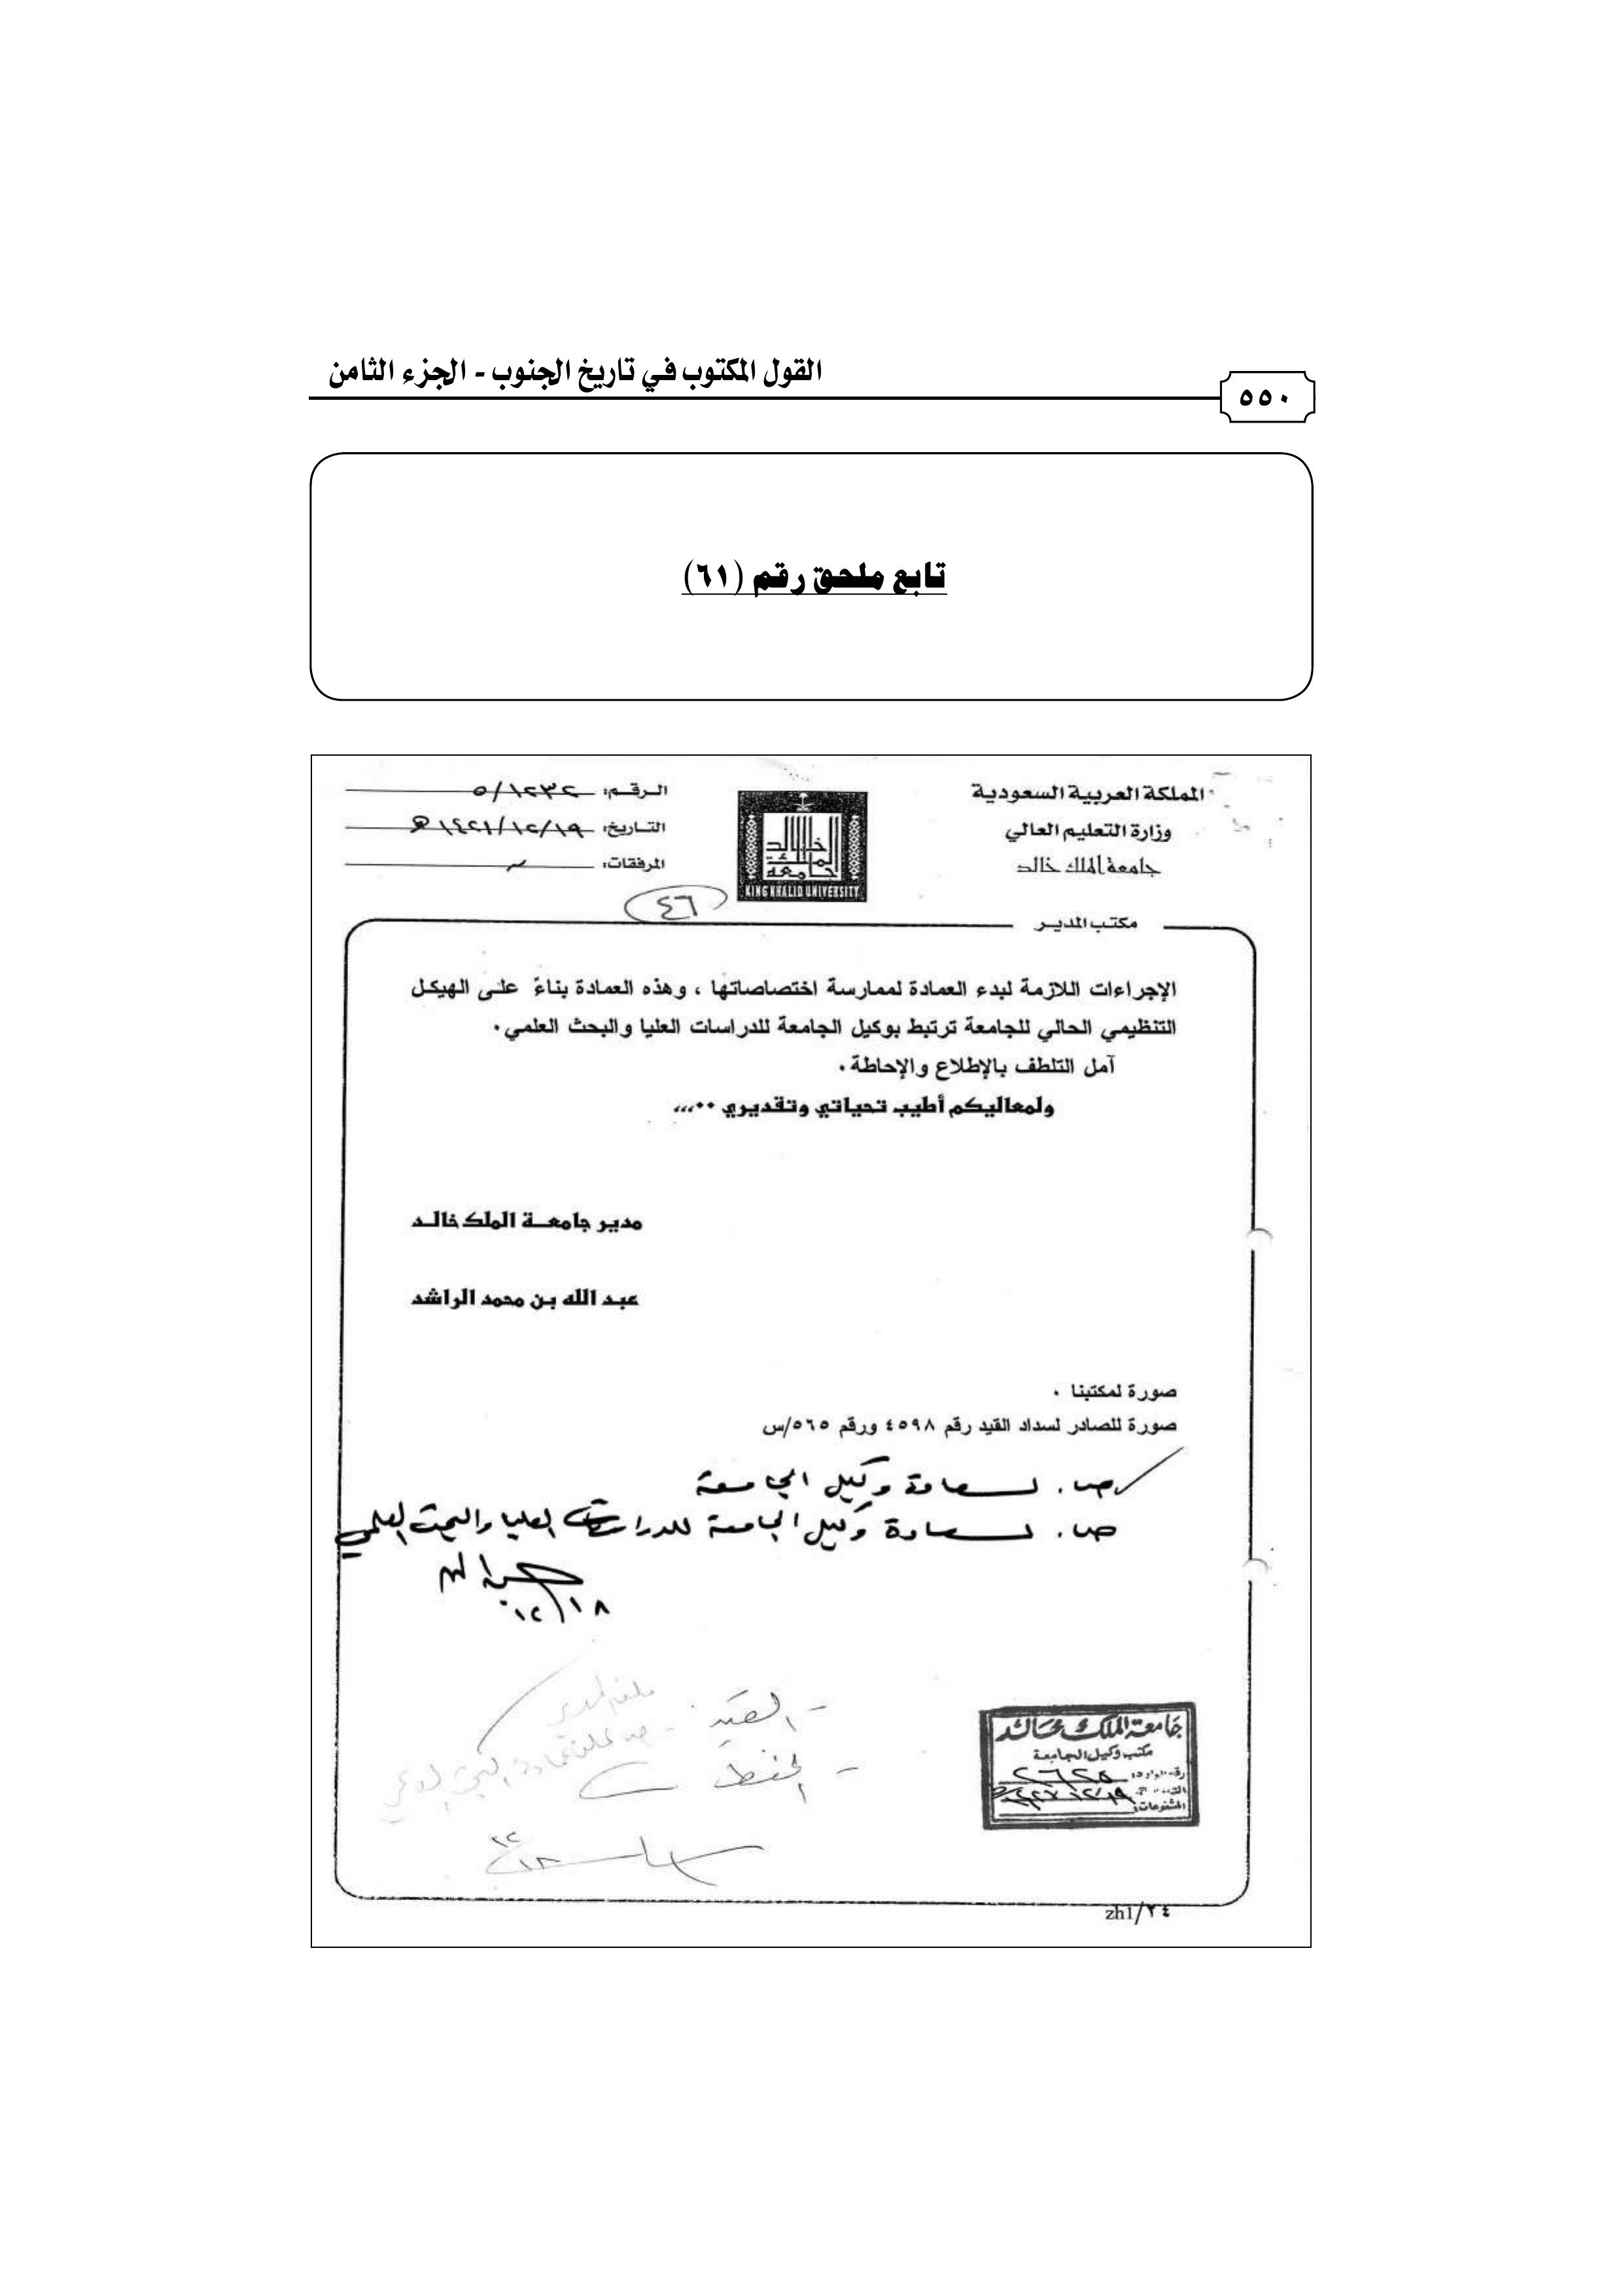 القول المكتوب في تاريخ الجنوب - الجزء الثامن
٥٥٠
تابع ملحق رقم (٦١)
المملكة العربية السعودية
وزارة التعليم العالي
جامعة الملك خالد
جامعة الملك خالد
KING KHALID UNIVERSITY
الرقم: ٥/١٢٣٢
التاريخ: ١٤٢١/١٢/١٩هـ
المرفقات:
٤٦
مكتب المدير
الإجراءات اللازمة لبدء العمادة لممارسة اختصاصاتها ، وهذه العمادة بناءً على الهيكل
التنظيمي الحالي للجامعة ترتبط بوكيل الجامعة للدراسات العليا والبحث العلمي٠
آمل التلطف بالإطلاع والإحاطة٠
ولمعاليكم أطيب تحياتي وتقديري ٠٠،،،
مدير جامعة الملك خالد
عبد الله بن محمد الراشد
صورة لمكتبنا ٠
صورة للصادر لسداد القيد رقم ٤٥٩٨ ورقم ٥٦٥/س
ص. لسعادة وكيل الجامعة
ص. لسعادة وكيل الجامعة للدراسات العليا والبحث العلمي
١٢/١٨
- القيد
- الحفظ
جامعة الملك خالد
مكتب وكيل الجامعة
المشفوعات:
zh1/٢٤